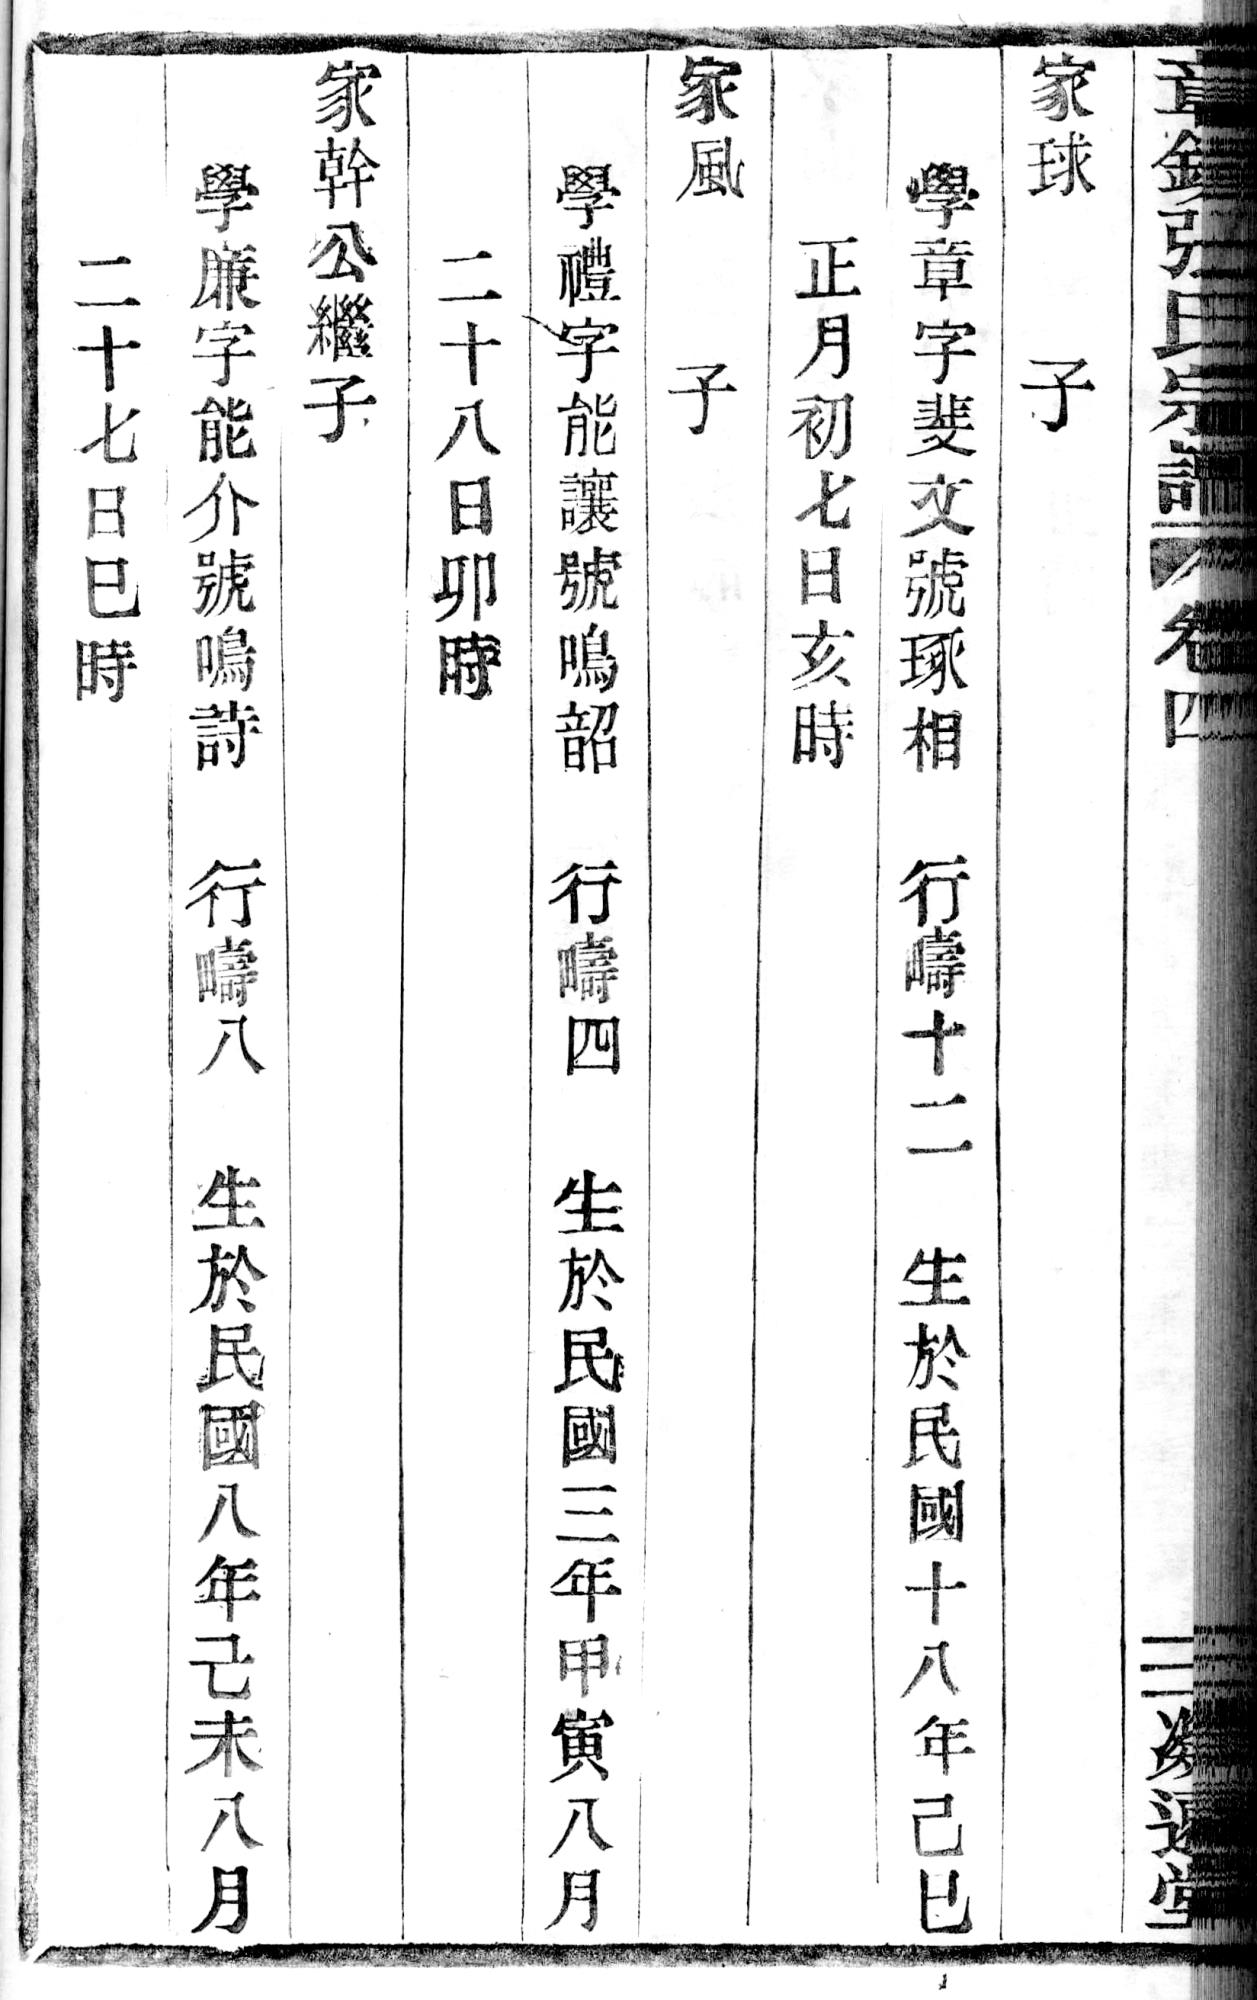 章鎮張氏宗譜 卷四 三 遠堂
家球 子
學章字斐文號琢相 行疇十二 生於民國十八年己巳
正月初七日亥時
家風 子
學禮字能讓號鳴韶 行疇四 生於民國三年甲寅八月
二十八日卯時
家幹公繼子
學廉字能介號鳴詩 行疇八 生於民國八年己未八月
二十七日巳時